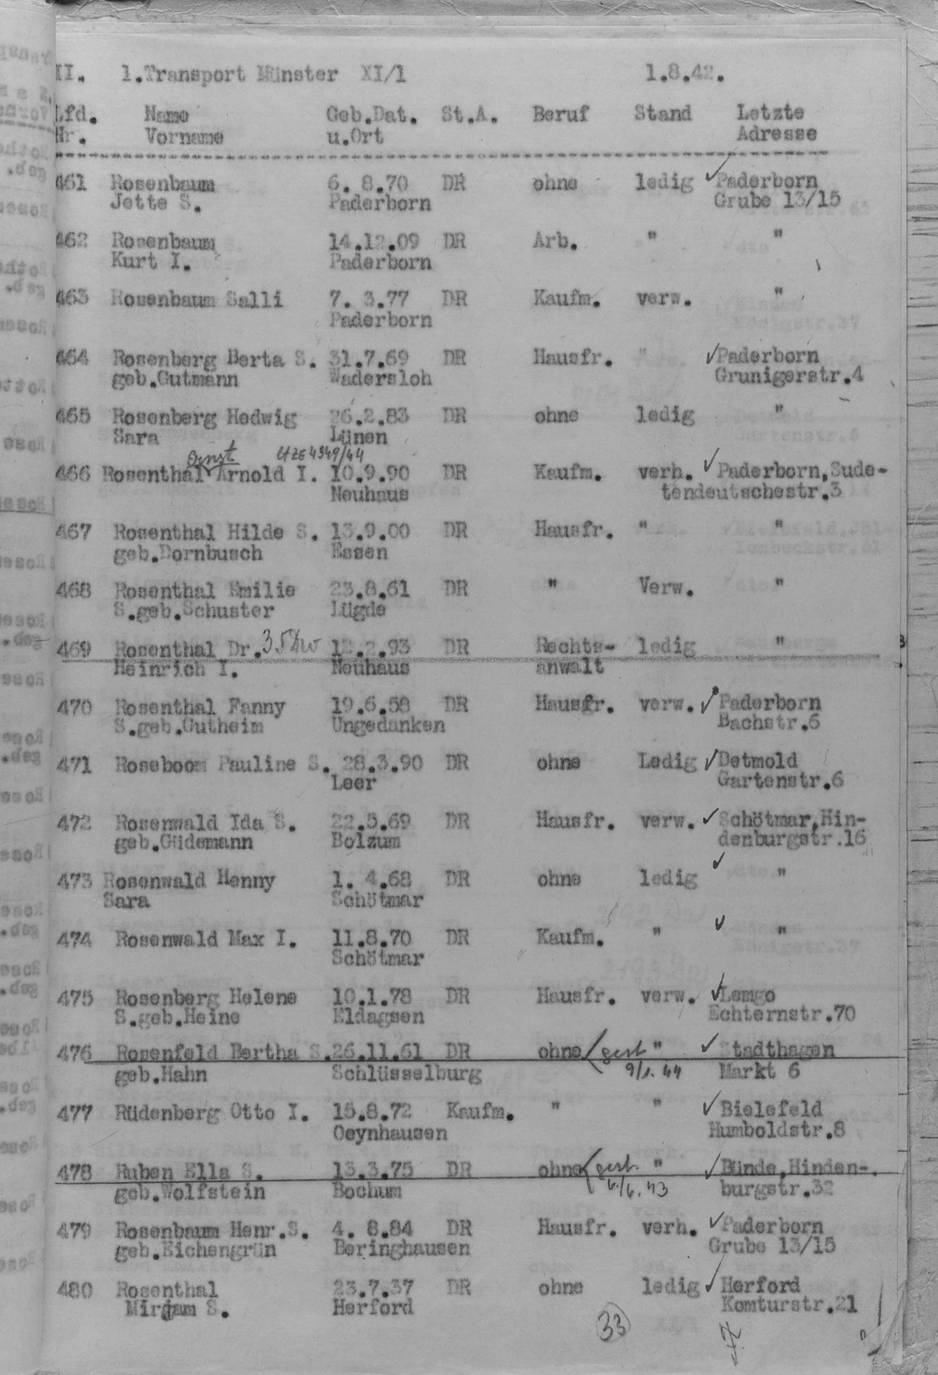 II. 1.Transport Münster XI/1 1.8.42.
Lfd. Name Geb.Dat. St.A. Beruf Stand Letzte
Nr. Vorname u.Ort Adresse
461 Rosenbaum 6. 8.70 DR ohne ledig Paderborn
Jette S. Paderborn Grube 13/15
462 Rosenbaum 14.12.09 DR Arb. " "
Kurt I. Paderborn
463 Rosenbaum Salli 7. 3.77 DR Kaufm. verw. "
Paderborn
464 Rosenberg Berta S. 31.7.69 DR Hausfr. " Paderborn
geb.Gutmann Wadersloh Grunigerstr.4
465 Rosenberg Hedwig 26.2.83 DR ohne ledig "
Sara Lünen
Ernst
466 Rosenthal Arnold I. 10.9.90 DR Kaufm. verh. Paderborn,Sude-
Neuhaus tendeutschestr.3
467 Rosenthal Hilde S. 13.9.00 DR Hausfr. " "
geb.Dornbusch Essen
468 Rosenthal Emilie 23.8.61 DR " Verw. "
S.geb.Schuster Lügde
469 Rosenthal Dr. 12.2.93 DR Rechts- ledig "
Heinrich I. Neuhaus anwalt
470 Rosenthal Fanny 19.6.58 DR Hausfr. verw. Paderborn
S.geb.Gutheim Ungedanken Bachstr.6
471 Roseboom Pauline S. 28.3.90 DR ohne Ledig Detmold
Leer Gartenstr.6
472 Rosenwald Ida S. 22.5.69 DR Hausfr. verw. Schötmar,Hin-
geb.Güdemann Bolzum denburgstr.16
473 Rosenwald Henny 1. 4.68 DR ohne ledig "
Sara Schötmar
474 Rosenwald Max I. 11.8.70 DR Kaufm. " "
Schötmar
475 Rosenberg Helene 10.1.78 DR Hausfr. verw. Lemgo
S.geb.Heine Eldagsen Echternstr.70
476 Rosenfeld Bertha S. 26.11.61 DR ohne gest. " Stadthagen
geb.Hahn Schlüsselburg 9/1.44 Markt 6
477 Rüdenberg Otto I. 15.8.72 Kaufm. " " Bielefeld
Oeynhausen Humboldstr.8
478 Ruben Ella S. 13.3.75 DR ohne gest. " Bünde,Hinden-
geb.Wolfstein Bochum burgstr.32
479 Rosenbaum Henr.S. 4. 8.84 DR Hausfr. verh. Paderborn
geb.Eichengrün Beringhausen Grube 13/15
480 Rosenthal 23.7.37 DR ohne ledig Herford
Mirjam S. Herford Komturstr.21
33